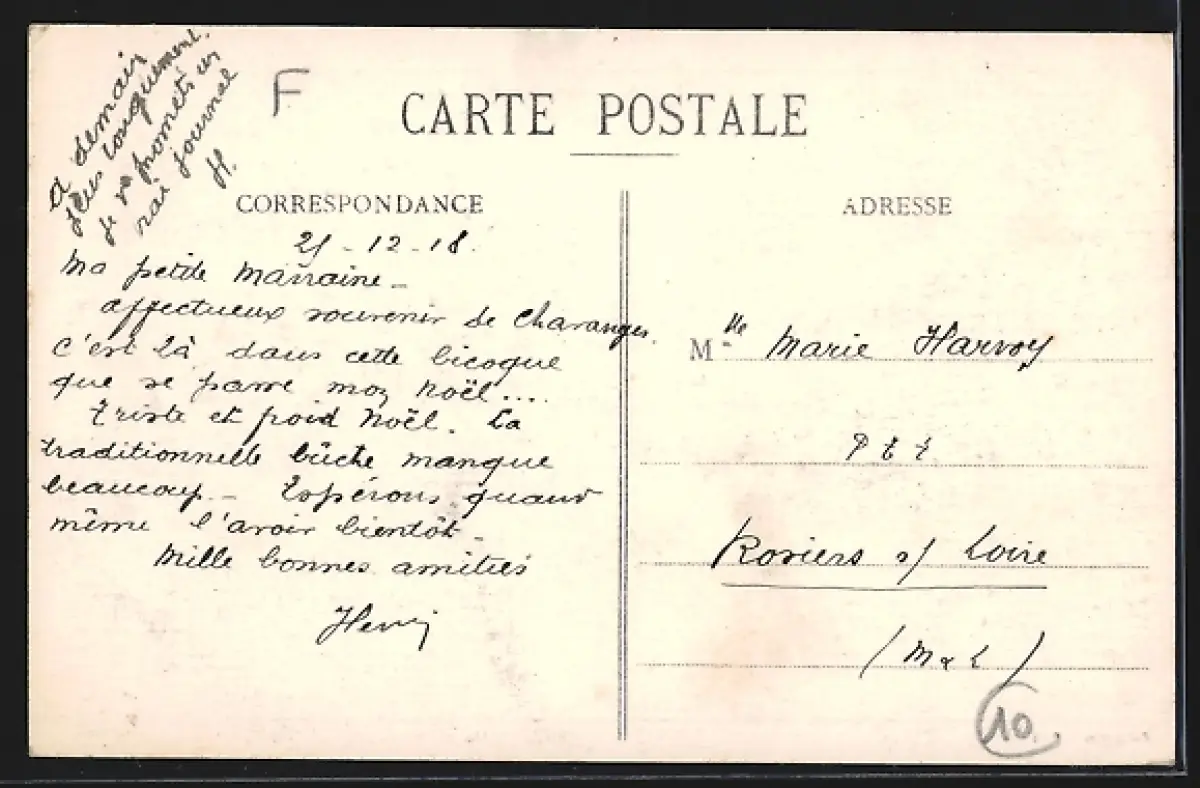 a demain
plus longuement.
Je vs promets un
vrai journal
H.
F
CARTE POSTALE
CORRESPONDANCE
21-12-18.
Ma petite Marraine -
affectueux souvenir de Chavanges.
C'est là dans cette bicoque
que se passe mon Noël...
Triste et froid Noël. La
traditionnelle bûche manque
beaucoup. - Espérons quand
même l'avoir bientôt -
Mille bonnes amitiés
Henri
ADRESSE
Mlle Marie Harvoy
P t t
Rosiers s/ Loire
(M & L)
10